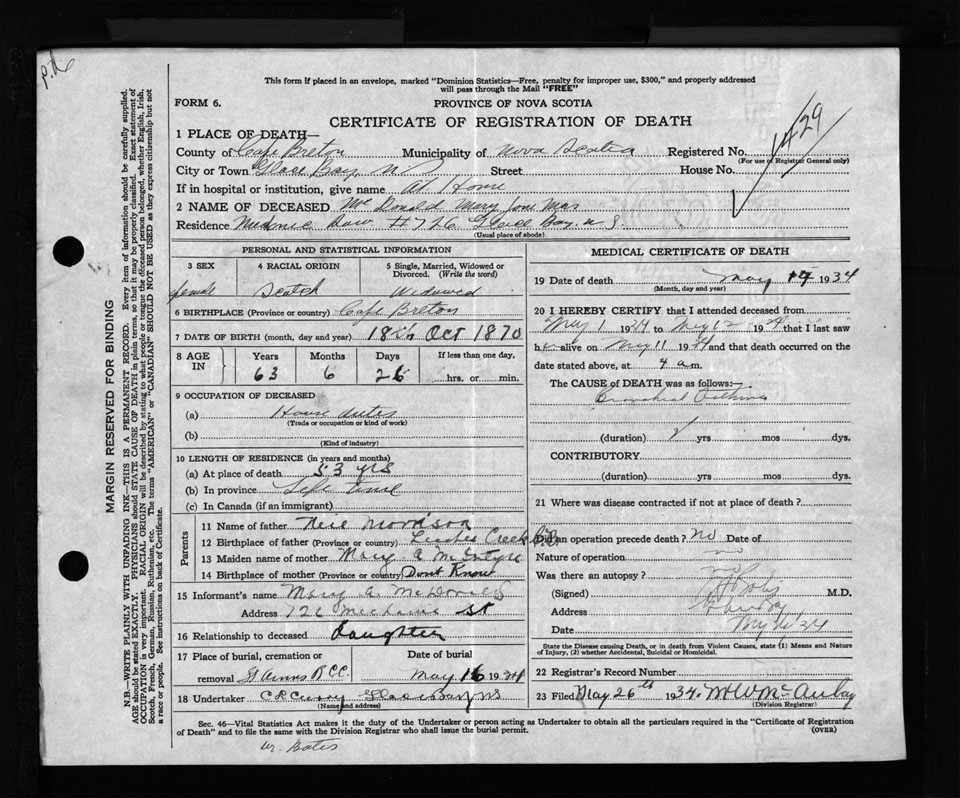 This form if placed in an envelope, marked "Dominion Statistics—Free, penalty for improper use, $300," and properly addressed
will pass through the Mail "FREE"
FORM 6.
PROVINCE OF NOVA SCOTIA
CERTIFICATE OF REGISTRATION OF DEATH
1429
1 PLACE OF DEATH—
County of Cape Breton Municipality of Nova Scotia Registered No.
(For use of Registrar General only)
City or Town Glace Bay NS Street House No.
If in hospital or institution, give name At Home
2 NAME OF DECEASED Mc Donald Mary Jane Mrs
Residence Row # 726 Glace Bay N S
(Usual place of abode)
PERSONAL AND STATISTICAL INFORMATION
3 SEX 4 RACIAL ORIGIN 5 Single, Married, Widowed or Divorced. (Write the word)
female Scotch Widowed
6 BIRTHPLACE (Province or country) Cape Breton
7 DATE OF BIRTH (month, day and year) 18th Oct 1870
8 AGE IN Years Months Days If less than one day,
63 6 26 hrs. or min.
9 OCCUPATION OF DECEASED
(a) House duties
(Trade or occupation or kind of work)
(b)
(Kind of industry)
10 LENGTH OF RESIDENCE (in years and months)
(a) At place of death 53 yrs
(b) In province Life time
(c) In Canada (if an immigrant)
Parents
11 Name of father Neil Morrison
12 Birthplace of father (Province or country) Leitches Creek C.B.
13 Maiden name of mother Mary A McIntyre
14 Birthplace of mother (Province or country) Dont Know
15 Informant's name Mary A. McDonald
Address 726 St
16 Relationship to deceased Daughter
17 Place of burial, cremation or Date of burial
removal St Anns RCC May 16 1934
18 Undertaker Curry Glace Bay NS
(Name and address)
MEDICAL CERTIFICATE OF DEATH
19 Date of death May 14 1934
(Month, day and year)
20 I HEREBY CERTIFY that I attended deceased from
May 1 1934 to May 12 1934 that I last saw
her alive on May 11 1934 and that death occurred on the
date stated above, at 4 a.m.
The CAUSE of DEATH was as follows:—
Bronchial Asthma
(duration) yrs mos dys.
CONTRIBUTORY
(duration) yrs mos dys.
21 Where was disease contracted if not at place of death?
Did an operation precede death? no Date of
Nature of operation no
Was there an autopsy? no
(Signed) M.D.
Address
Date May 26 34
State the Disease causing Death, or in death from Violent Causes, state (1) Means and Nature
of Injury, (2) whether Accidental, Suicidal or Homicidal.
22 Registrar's Record Number
23 Filed May 26th 1934.
(Division Registrar)
Sec. 46—Vital Statistics Act makes it the duty of the Undertaker or person acting as Undertaker to obtain all the particulars required in the "Certificate of Registration
of Death" and to file the same with the Division Registrar who shall issue the burial permit.
(OVER)
Dr. Bates
MARGIN RESERVED FOR BINDING
N.B.—WRITE PLAINLY WITH UNFADING INK—THIS IS A PERMANENT RECORD. Every item of information should be carefully supplied.
AGE should be stated EXACTLY. PHYSICIANS should STATE CAUSE OF DEATH in plain terms, so that it may be properly classified. Exact statement of
OCCUPATION is very important. RACIAL ORIGIN will be described by stating to what people or tongue the deceased person belonged, whether English, Irish,
Scotch, French, German, Russian, Ruthenian, etc. The terms "AMERICAN" or "CANADIAN" SHOULD NOT BE USED as they express citizenship but not
a race or people. See instructions on back of Certificate.